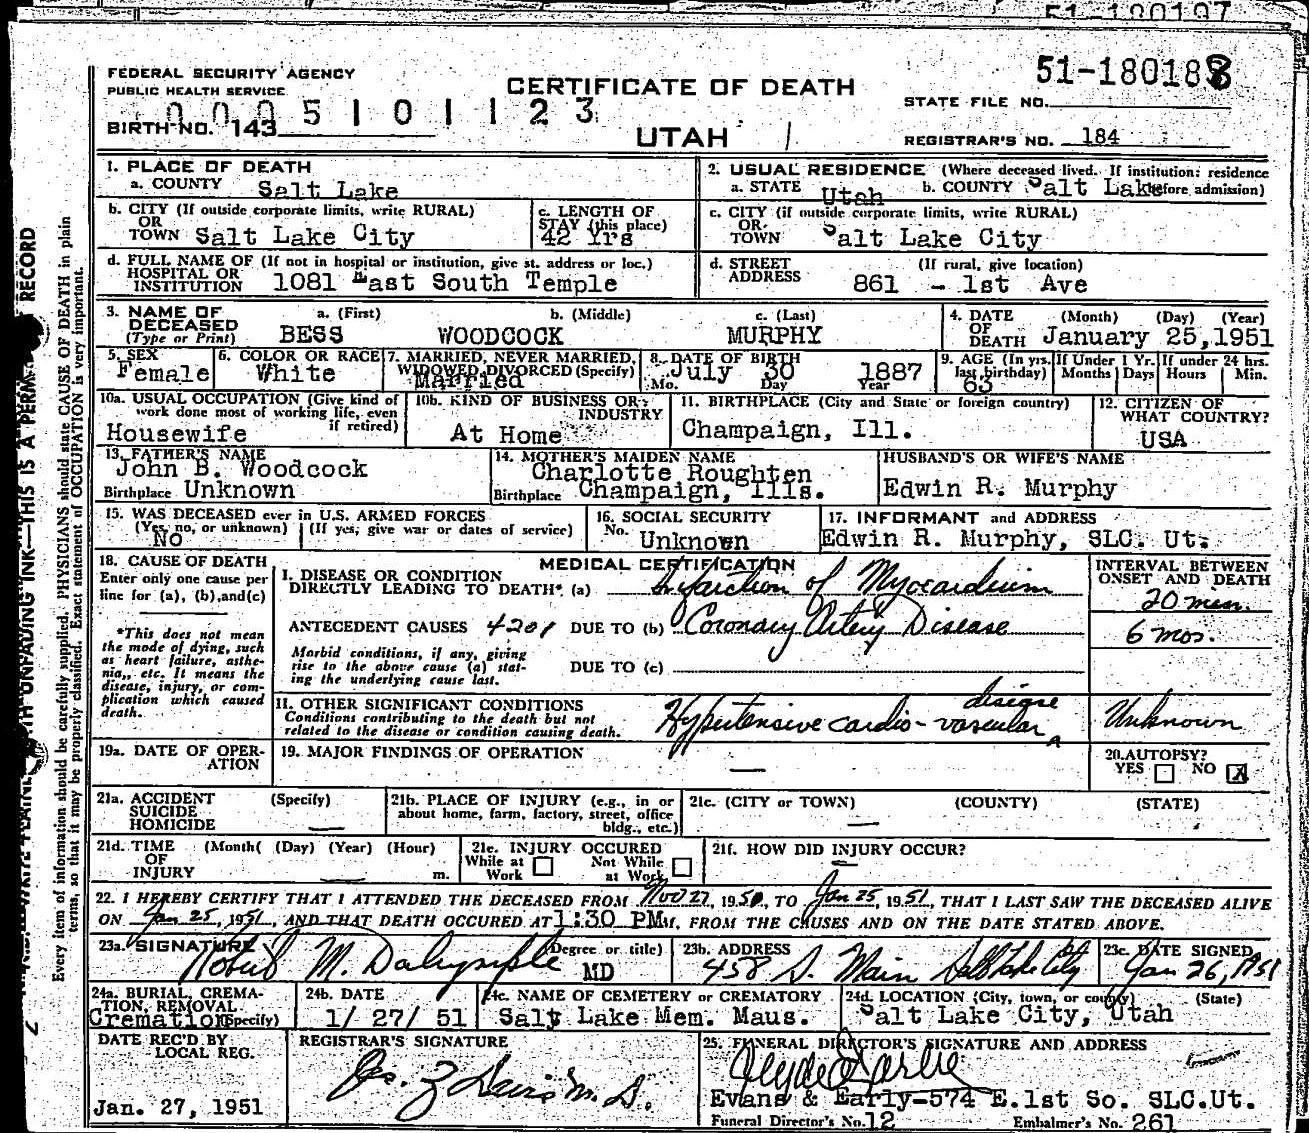 FEDERAL SECURITY AGENCY
PUBLIC HEALTH SERVICE
0 0 0 5 1 0 1 1 2 3
BIRTH NO. 143
CERTIFICATE OF DEATH
UTAH
51-180188
STATE FILE NO.
REGISTRAR'S NO. 184
1. PLACE OF DEATH
a. COUNTY Salt Lake
2. USUAL RESIDENCE (Where deceased lived. If institution: residence
a. STATE Utah b. COUNTY Salt Lake before admission)
b. CITY (If outside corporate limits, write RURAL)
OR
TOWN Salt Lake City
c. LENGTH OF
STAY (this place)
42 Yrs
c. CITY (if outside corporate limits, write RURAL)
OR
TOWN Salt Lake City
d. FULL NAME OF (If not in hospital or institution, give st. address or loc.)
HOSPITAL OR
INSTITUTION 1081 East South Temple
d. STREET (If rural, give location)
ADDRESS 861 - 1st Ave
3. NAME OF a. (First) b. (Middle) c. (Last)
DECEASED
(Type or Print) BESS WOODCOCK MURPHY
4. DATE (Month) (Day) (Year)
OF
DEATH January 25,1951
5. SEX
Female
6. COLOR OR RACE
White
7. MARRIED, NEVER MARRIED,
WIDOWED, DIVORCED (Specify)
Married
8. DATE OF BIRTH
July 30 1887
Mo. Day Year
9. AGE (In yrs.
last birthday)
63
If Under 1 Yr.
Months Days
If under 24 hrs.
Hours Min.
10a. USUAL OCCUPATION (Give kind of
work done most of working life, even
if retired)
Housewife
10b. KIND OF BUSINESS OR
INDUSTRY
At Home
11. BIRTHPLACE (City and State or foreign country)
Champaign, Ill.
12. CITIZEN OF
WHAT COUNTRY?
USA
13. FATHER'S NAME
John B. Woodcock
Birthplace Unknown
14. MOTHER'S MAIDEN NAME
Charlotte Roughten
Birthplace Champaign, Ills.
HUSBAND'S OR WIFE'S NAME
Edwin R. Murphy
15. WAS DECEASED ever in U.S. ARMED FORCES
(Yes, no, or unknown) (If yes, give war or dates of service)
No
16. SOCIAL SECURITY
No. Unknown
17. INFORMANT and ADDRESS
Edwin R. Murphy, SLC. Ut.
18. CAUSE OF DEATH
Enter only one cause per
line for (a), (b), and (c)
*This does not mean
the mode of dying, such
as heart failure, asthe-
nia,, etc. It means the
disease, injury, or com-
plication which caused
death.
MEDICAL CERTIFICATION
I. DISEASE OR CONDITION
DIRECTLY LEADING TO DEATH* (a) Infarction of Myocardium
ANTECEDENT CAUSES 4201 DUE TO (b) Coronary Artery Disease
Morbid conditions, if any, giving
rise to the above cause (a) stat-
ing the underlying cause last.
DUE TO (c)
INTERVAL BETWEEN
ONSET AND DEATH
20 min.
6 mos.
II. OTHER SIGNIFICANT CONDITIONS
Conditions contributing to the death but not
related to the disease or condition causing death.
Hypertensive cardio-vascular disease
Unknown
19a. DATE OF OPER-
ATION
19. MAJOR FINDINGS OF OPERATION
—
20. AUTOPSY?
YES NO X
21a. ACCIDENT (Specify)
SUICIDE
HOMICIDE —
21b. PLACE OF INJURY (e.g., in or
about home, farm, factory, street, office
bldg., etc.)
21c. (CITY or TOWN) (COUNTY) (STATE)
—
21d. TIME (Month( (Day) (Year) (Hour)
OF
INJURY — m.
21e. INJURY OCCURED
While at Not While
Work at Work
21f. HOW DID INJURY OCCUR?
—
22. I HEREBY CERTIFY THAT I ATTENDED THE DECEASED FROM Nov 27, 1950, TO Jan 25, 1951, THAT I LAST SAW THE DECEASED ALIVE
ON Jan 25, 1951, AND THAT DEATH OCCURED AT 1:30 PM M, FROM THE CAUSES AND ON THE DATE STATED ABOVE.
23a. SIGNATURE (Degree or title)
Robert M. Dalrymple MD
23b. ADDRESS
458 S. Main Salt Lake City
23c. DATE SIGNED
Jan 26, 1951
24a. BURIAL, CREMA-
TION, REMOVAL
Cremation (Specify)
24b. DATE
1/ 27/ 51
24c. NAME OF CEMETERY or CREMATORY
Salt Lake Mem. Maus.
24d. LOCATION (City, town, or county) (State)
Salt Lake City, Utah
DATE REC'D BY
LOCAL REG.
Jan. 27, 1951
REGISTRAR'S SIGNATURE
25. FUNERAL DIRECTOR'S SIGNATURE AND ADDRESS
Evans & Early-574 E.1st So. SLC.Ut.
Funeral Director's No. 12 Embalmer's No. 261
Every item of information should be carefully supplied. PHYSICIANS should state CAUSE OF DEATH in plain
terms, so that it may be properly classified. Exact statement of OCCUPATION is very important.
UNFADING INK—THIS IS A PERM RECORD